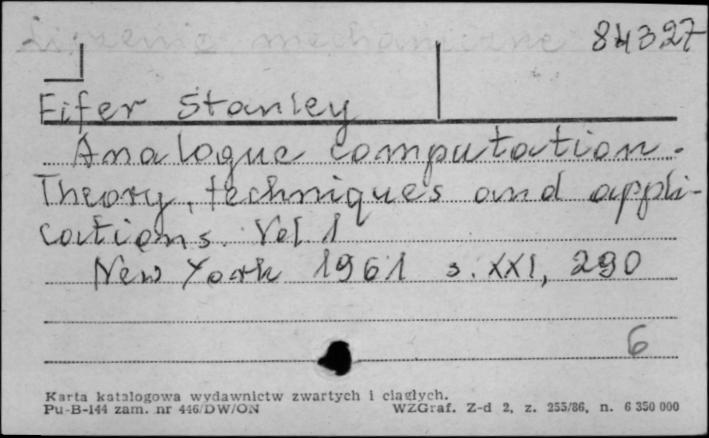 Liczenie mechaniczne 84327
Fifer Stanley
Analogue computation.
Theory, techniques and appli-
cations. Vol 1
New York 1961 s. XXI, 290
6
Karta katalogowa wydawnictw zwartych i ciągłych.
Pu-B-144 zam. nr 446/DW/ON WZGraf. Z-d 2, z. 255/86, n. 6 350 000